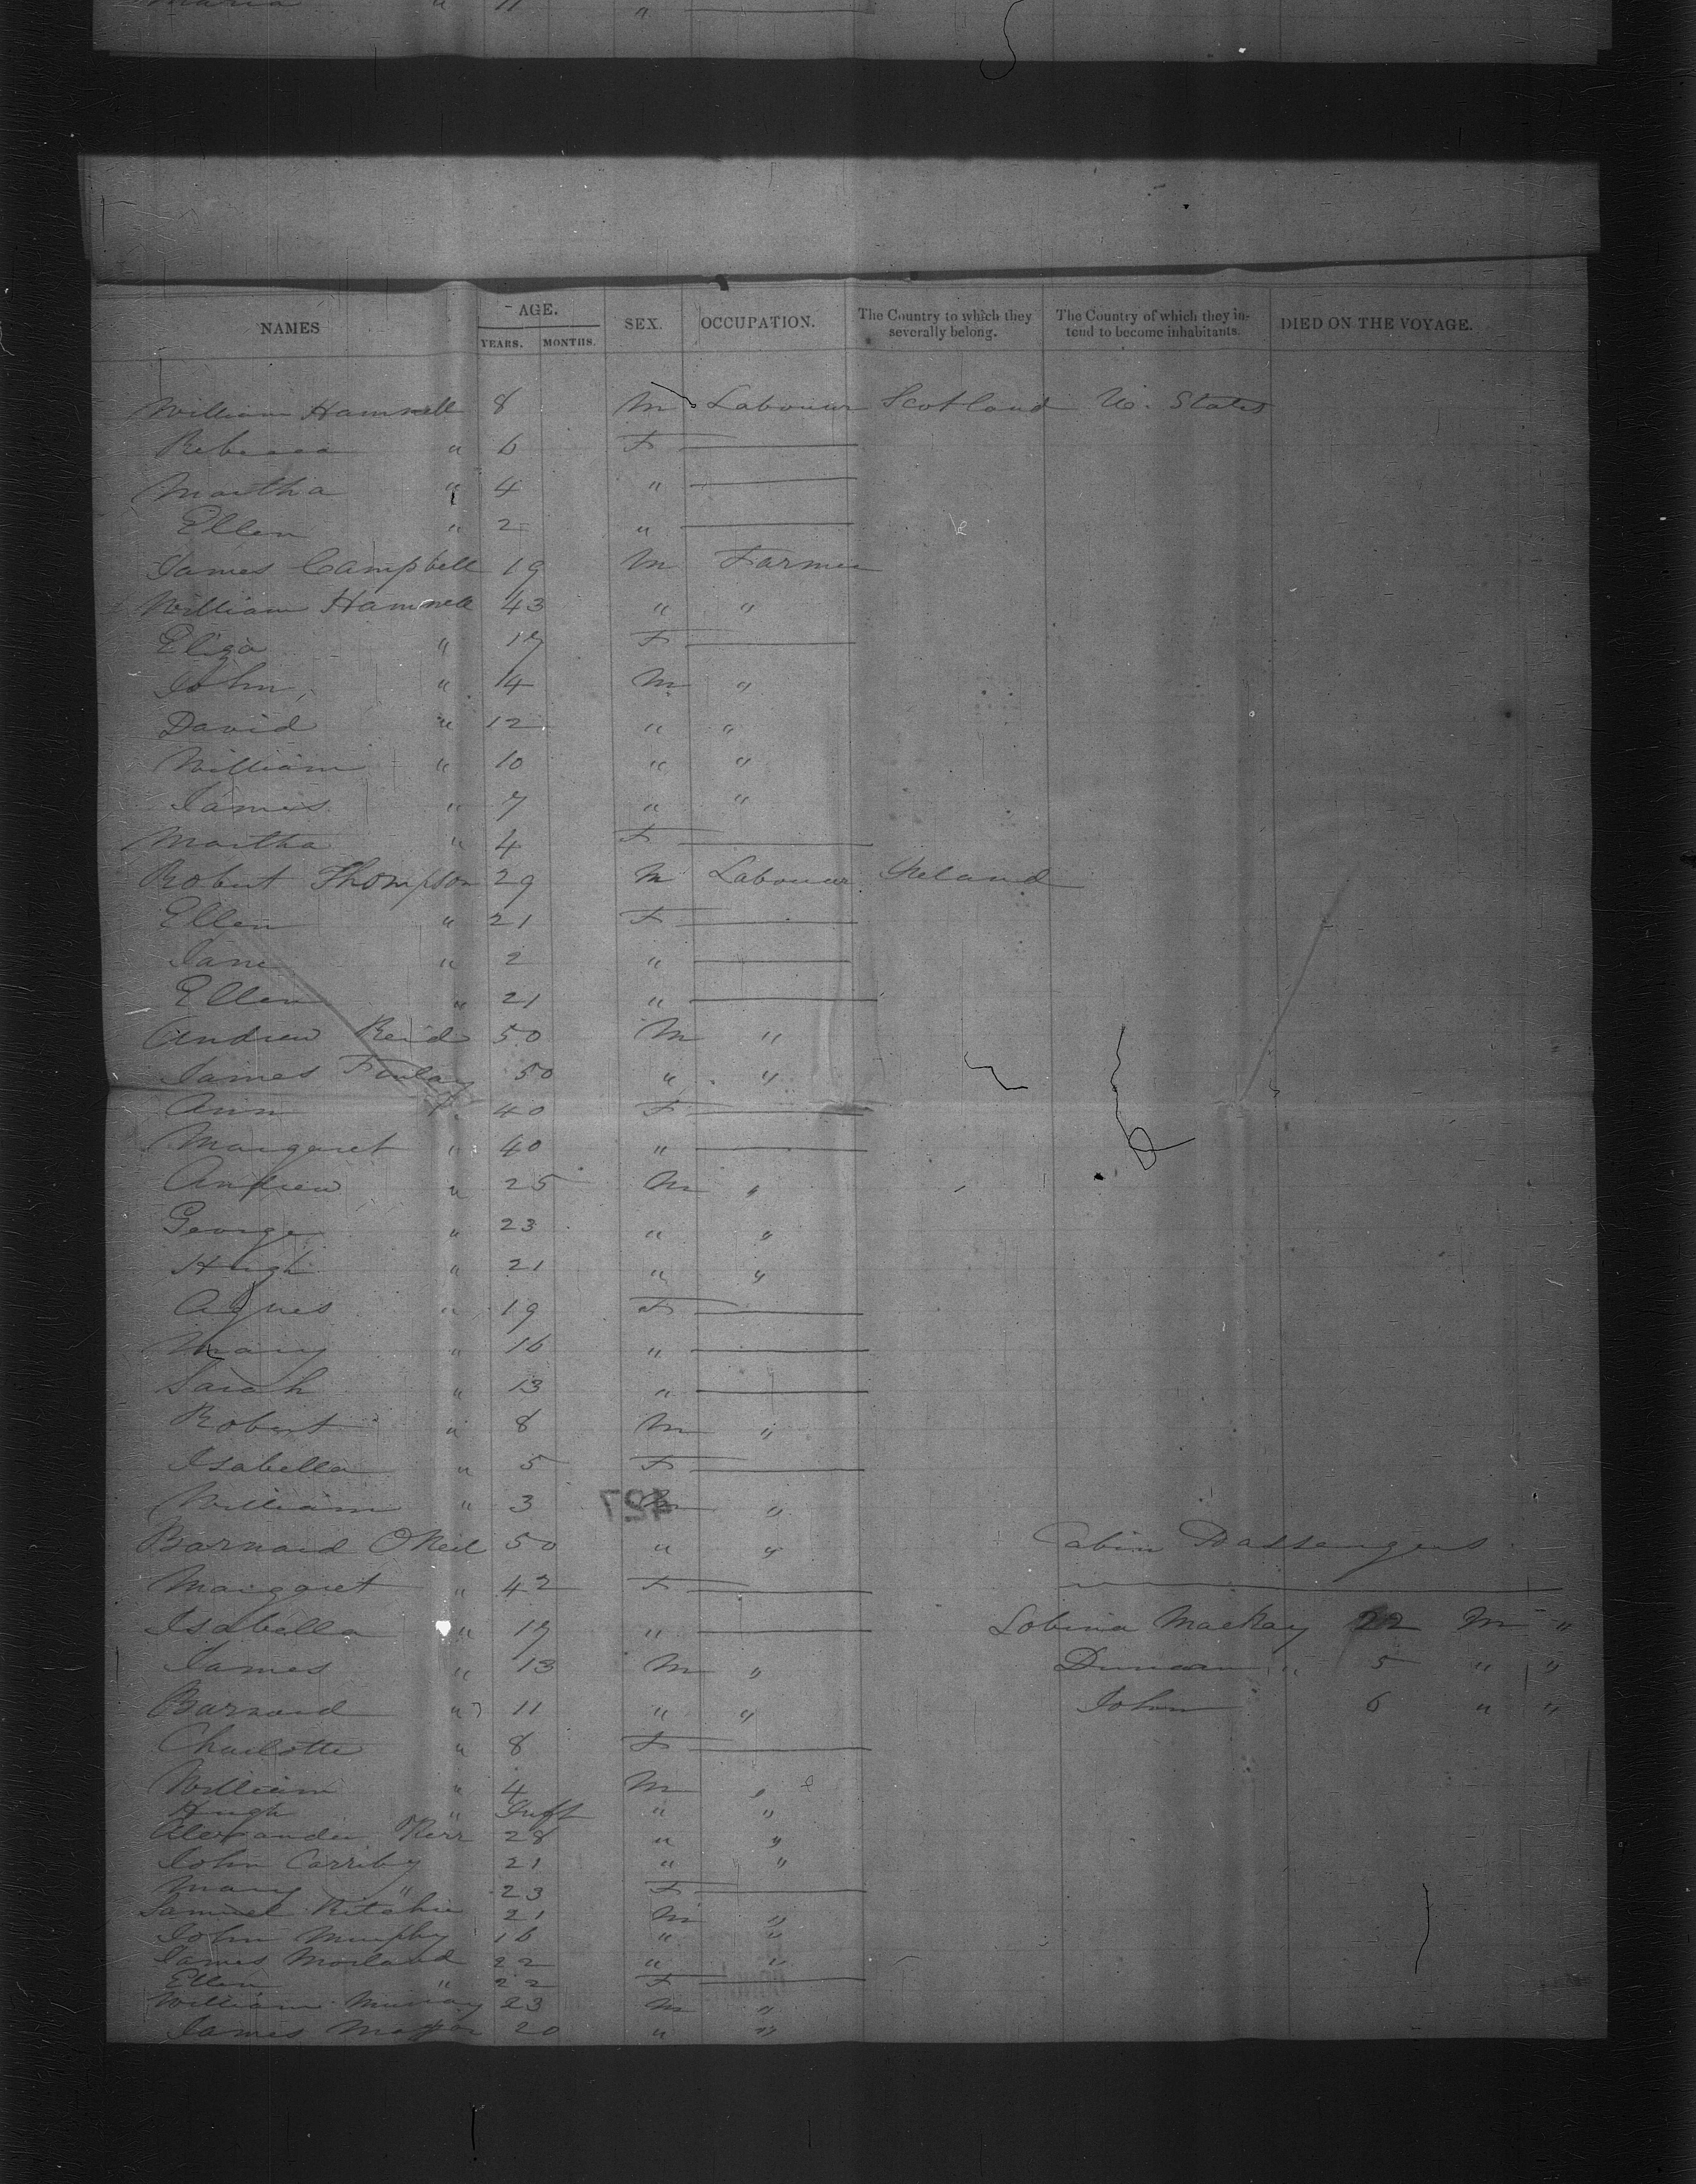 Maria " 11 "
NAMES AGE. YEARS. MONTHS. SEX. OCCUPATION. The Country to which they severally belong. The Country of which they intend to become inhabitants. DIED ON THE VOYAGE.
William Hamnell 8 M Labourer Scotland U. States
Rebecca " 6 F
Martha " 4 "
Ellen " 2 "
James Campbell 19 M Farmer
William Hamnell 43 " "
Eliza " 17 F
John " 14 M "
David " 12 " "
William " 10 " "
James " 7 " "
Martha " 4 F
Robert Thompson 29 M Labourer Ireland
Ellen " 21 F
Jane " 2 "
Ellen " 21 "
Andrew Reid 50 M "
James Finlay 50 " "
Ann 40 F
Margaret " 40 "
Andrew " 25 M "
George " 23 " "
Hugh " 21 " "
Agnes " 19 F
Mary " 16 "
Sarah " 13 "
Robert " 8 M "
Isabella " 5 F
William " 3 M "
427
Barnard ONeil 50 " "
Margaret " 42 F
Isabella " 17 "
James " 13 M "
Barnard " 11 " "
Charlotte " 8 F
William " 4 M "
Hugh " Inft " "
Alexander Kerr 28 " "
John Carriby 21 " "
Mary " 23 F
Samuel Ritchie 21 M "
John Murphy 16 " "
James Morland 22 " "
Ellen " 22 F
William Murray 23 M "
James 20 " "
Cabin Passengers
Lobina MacKay 22 M "
Duncan " 5 " "
John 6 " "